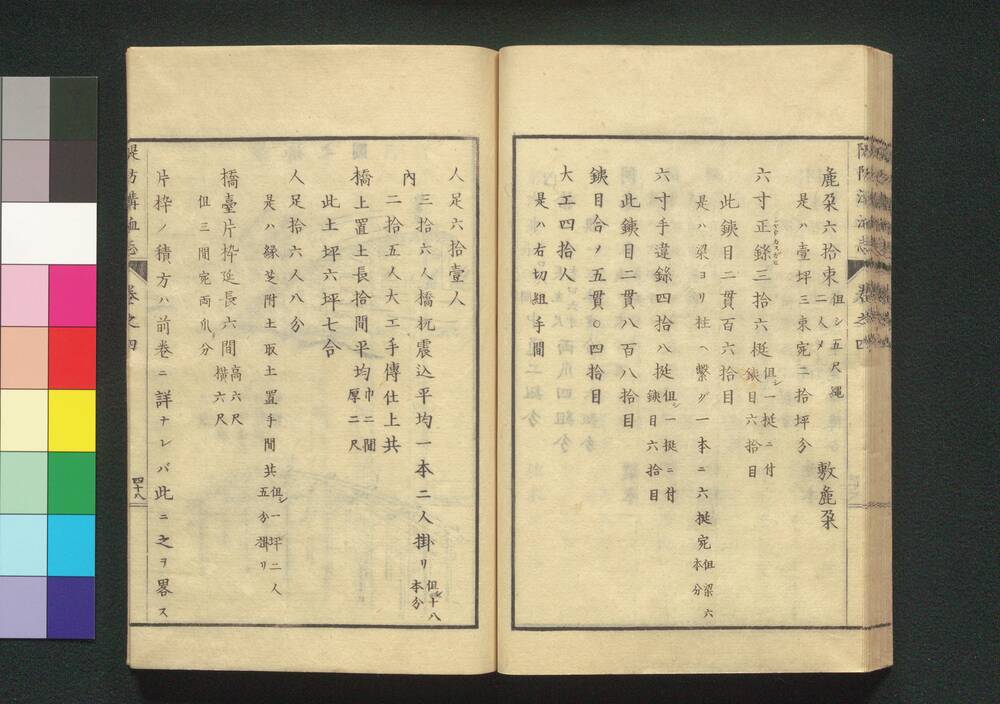 麁朶六拾束 但シ五尺縄二人〆 敷麁朶
是ハ壹坪三束宛二拾坪分
六寸正鎹三拾六挺 但シ一挺ニ付鐵目六拾目
此鐵目二貫百六拾目
是ハ梁ヨリ柱ヘ繋グ一本ニ六挺宛 但梁六本分
六寸手違鎹四拾八挺 但シ一挺ニ付鐵目六拾目
此鐵目二貫八百八拾目
鐵目合ノ五貫〇四拾目
大工四拾人
是ハ右切組手間
人足六拾壹人
内
三拾六人橋杭震込平均一本二人掛リ 但シ十八本分
二拾五人大工手傳仕上共
橋上置土長拾間平均 巾二間厚二尺
此土坪六坪七合
人足拾六人八分
是ハ縁芝附土取土置手間共 但シ一坪二人五分掛リ
橋臺片枠延長六間 高六尺横六尺
但三間宛両爪分
片枠ノ積方ハ前巻ニ詳ナレバ此ニ之ヲ畧ス
堤防溝洫志 巻之四 四十八